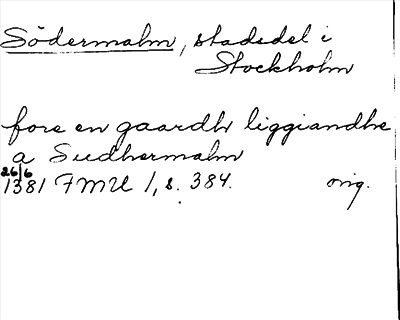 Södermalm, stadsdel i
Stockholm
fore en gaardh liggiandhe
a Sudhermalm
26/6
1381 FMU 1, s. 384. orig.